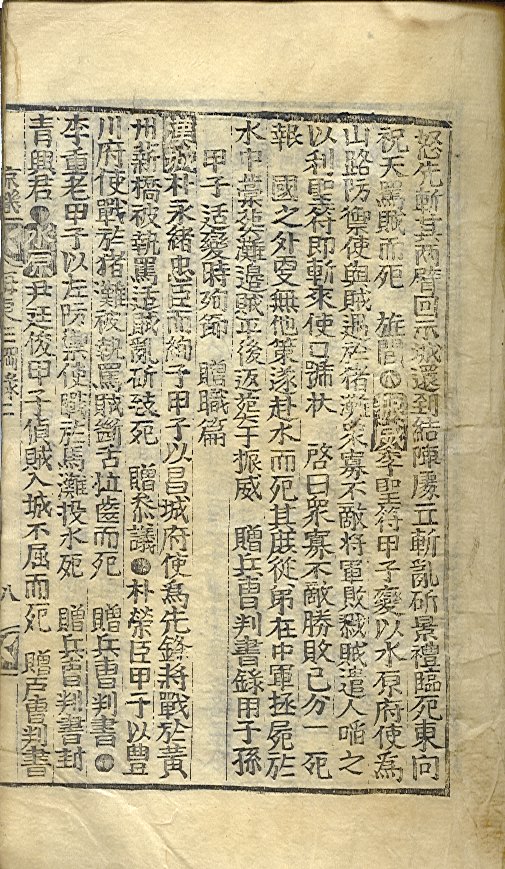 怒先斬其兩臂回示城還到結陣處立斬亂斫景禮臨死東向
祝天罵賊而死 旌閭 李聖符甲子變以水原府使爲
山路防禦使與賊遇於猪灘衆寡不敵將軍敗衂賊遣人啗之
以利聖符卽斬來使口號杖 啓曰衆寡不敵勝敗已分一死
報 國之外更無他策遂赴水而死其庶從弟在中軍拯屍於
水中藁葬灘邊賊平後返葬于振威 贈兵曹判書錄用子孫
甲子适變時殉節 贈職篇
漢城朴永緖忠臣而絢子甲子以昌城府使爲先鋒將戰於黃
州薪橋被執罵适賊亂斫致死 贈參議 朴榮臣甲子以豊
川府使戰於猪灘被執罵賊斷舌拉齒而死 贈兵曹判書
李重老甲子以左防禦使戰於馬灘投水死 贈兵曹判書封
靑興君 水原尹廷俊甲子偵賊入城不屈而死 贈戶曹判書
京畿 海東三綱錄二 八